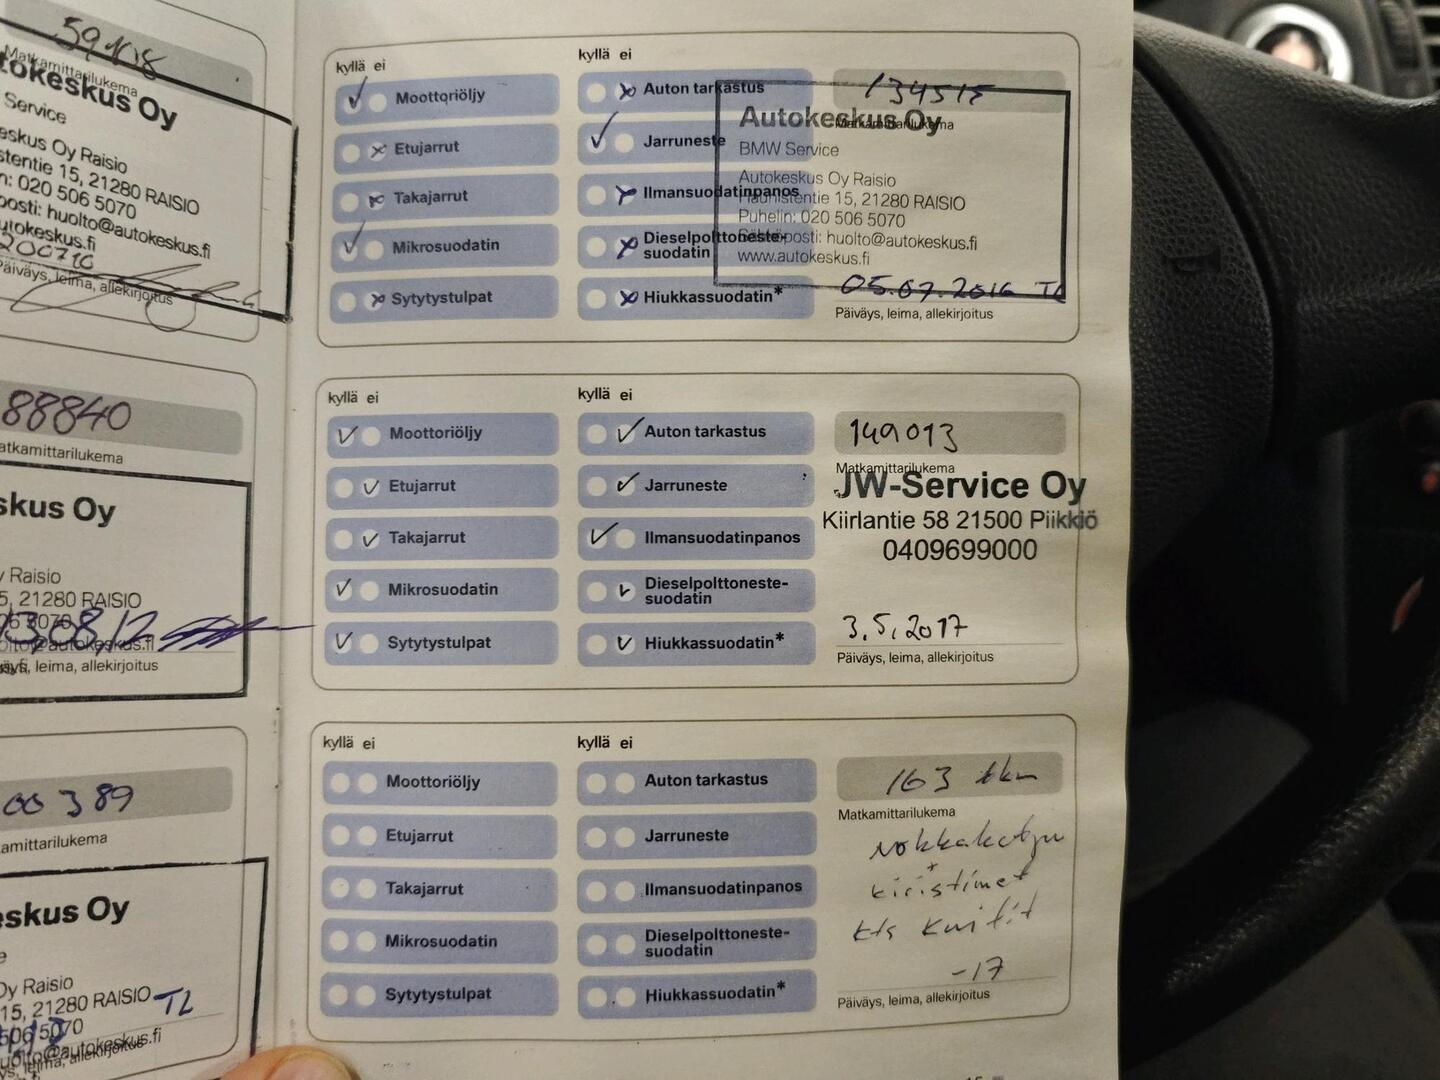 59108
Matkamittarilukema
tokeskus Oy
Service
eskus Oy Raisio
stentie 15, 21280 RAISIO
n: 020 506 5070
posti: huolto@autokeskus.fi
utokeskus.fi
200710
Päiväys, leima, allekirjoitus
88840
atkamittarilukema
skus Oy
y Raisio
5, 21280 RAISIO
06 5070
olto@autokeskus.fi
130812
leima, allekirjoitus
00389
amittarilukema
eskus Oy
e
Oy Raisio
15, 21280 RAISIO
TL
506 5070
uolto@autokeskus.fi
ys, leima, allekirjoitus
kyllä ei
Moottoriöljy
Etujarrut
Takajarrut
Mikrosuodatin
Sytytystulpat
kyllä ei
Auton tarkastus
Jarruneste
Ilmansuodatinpanos
Dieselpolttoneste-
suodatin
Hiukkassuodatin*
134515
Matkamittarilukema
Autokeskus Oy
BMW Service
Autokeskus Oy Raisio
Haunistentie 15, 21280 RAISIO
Puhelin: 020 506 5070
Sähköposti: huolto@autokeskus.fi
www.autokeskus.fi
05.07.2016 TL
Päiväys, leima, allekirjoitus
kyllä ei
Moottoriöljy
Etujarrut
Takajarrut
Mikrosuodatin
Sytytystulpat
kyllä ei
Auton tarkastus
Jarruneste
Ilmansuodatinpanos
Dieselpolttoneste-
suodatin
Hiukkassuodatin*
149013
Matkamittarilukema
JW-Service Oy
Kiirlantie 58 21500 Piikkiö
0409699000
3.5.2017
Päiväys, leima, allekirjoitus
kyllä ei
Moottoriöljy
Etujarrut
Takajarrut
Mikrosuodatin
Sytytystulpat
kyllä ei
Auton tarkastus
Jarruneste
Ilmansuodatinpanos
Dieselpolttoneste-
suodatin
Hiukkassuodatin*
163 tkm
Matkamittarilukema
Nokkaketju
+
kiristimet
kts kuitit
-17
Päiväys, leima, allekirjoitus